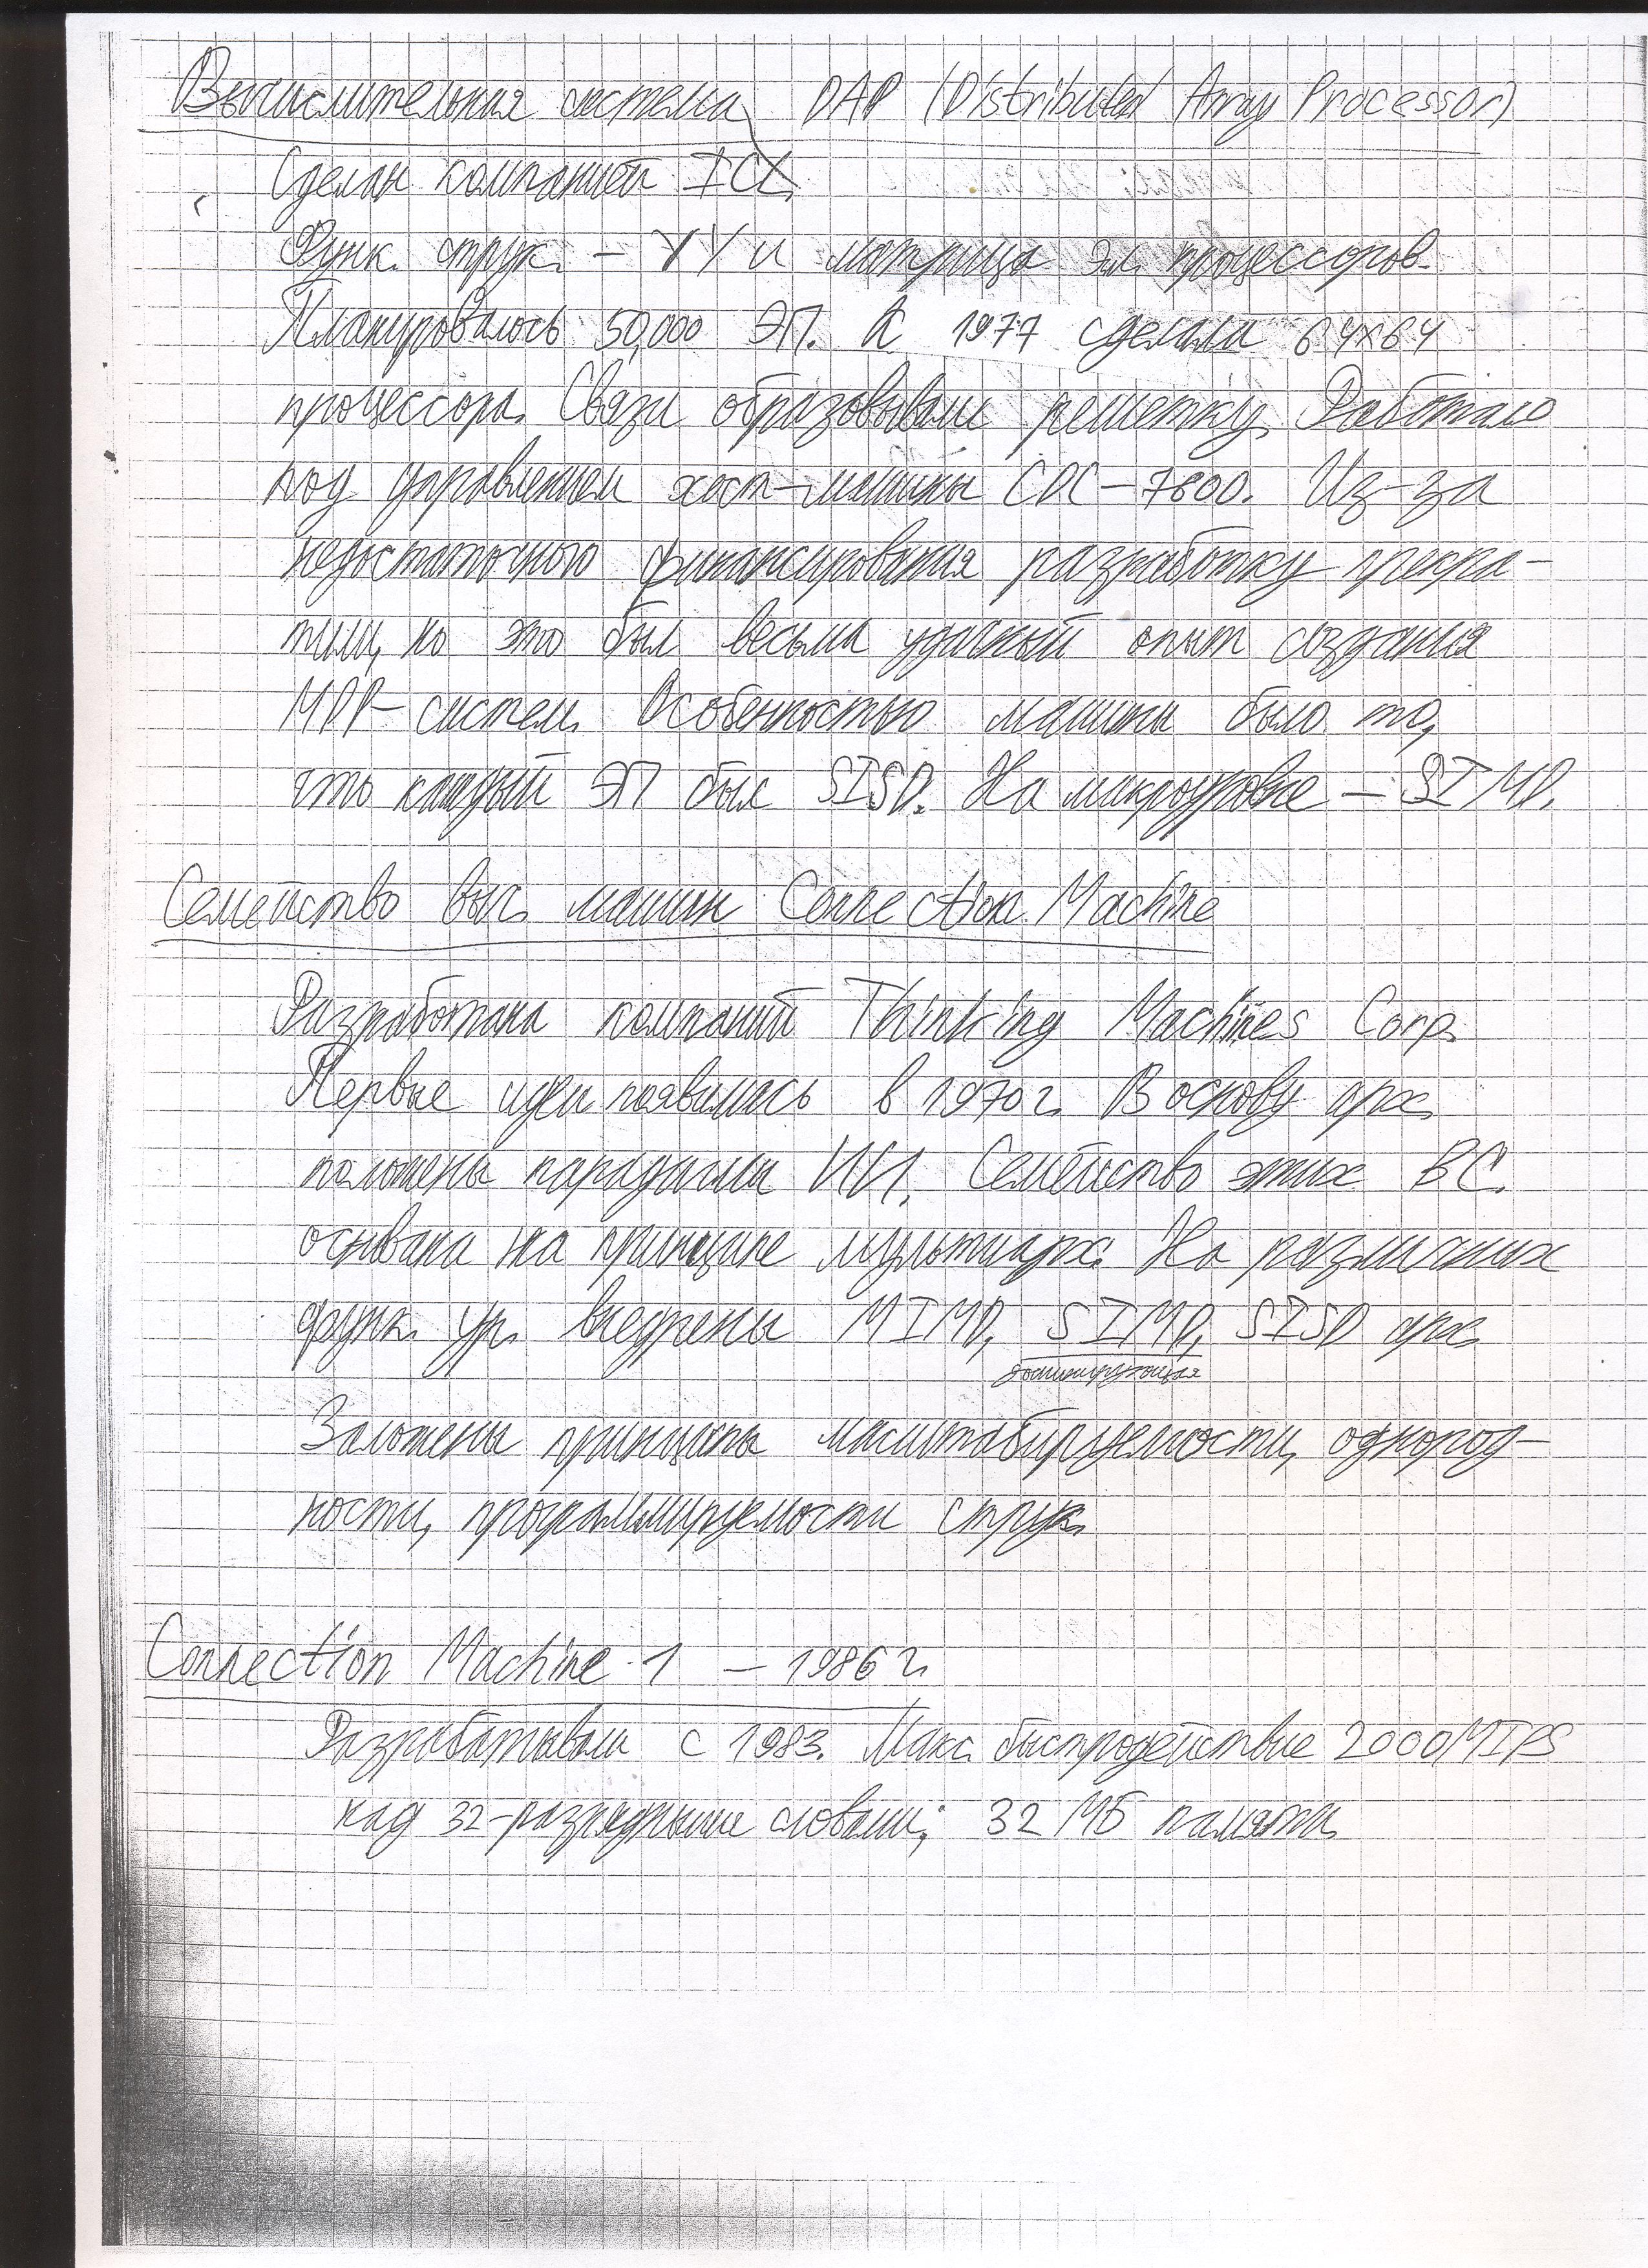 Вычислительная система DAP (Distributed Array Processor)
Сделан компанией ICL.
Функ. струк. – УУ и матрица эл. процессоров.
Планировалось 50,000 ЭП. К 1977 сделали 64x64
процессора. Связи образовывали решетку. Работало
под управлением хост-машины CDC-7600. Из-за
недостаточного финансирования разработку прекра-
тили, но это был весьма удачный опыт создания
MPP-систем. Особенностью машины было то,
что каждый ЭП был SISD. На макроуровне – SIMD.
Семейство выч. машин Connection Machine
Разработана компаний Thinking Machines Corp.
Первые идеи появились в 1970 г. В основу арх.
положены парадигмы ИИ. Семейство этих ВС.
основана на принципе мультиарх. На различных
функ. ур. внедрены MIMD, SIMD, SISD арх.
доминирующая
Заложены принципы масштабируемости, однород-
ности, программируемости струк.
Connection Machine 1 – 1986 г.
Разрабатывали с 1983. Макс. быстродействие 2000MIPS
над 32-разрядными словами; 32 МБ памяти.